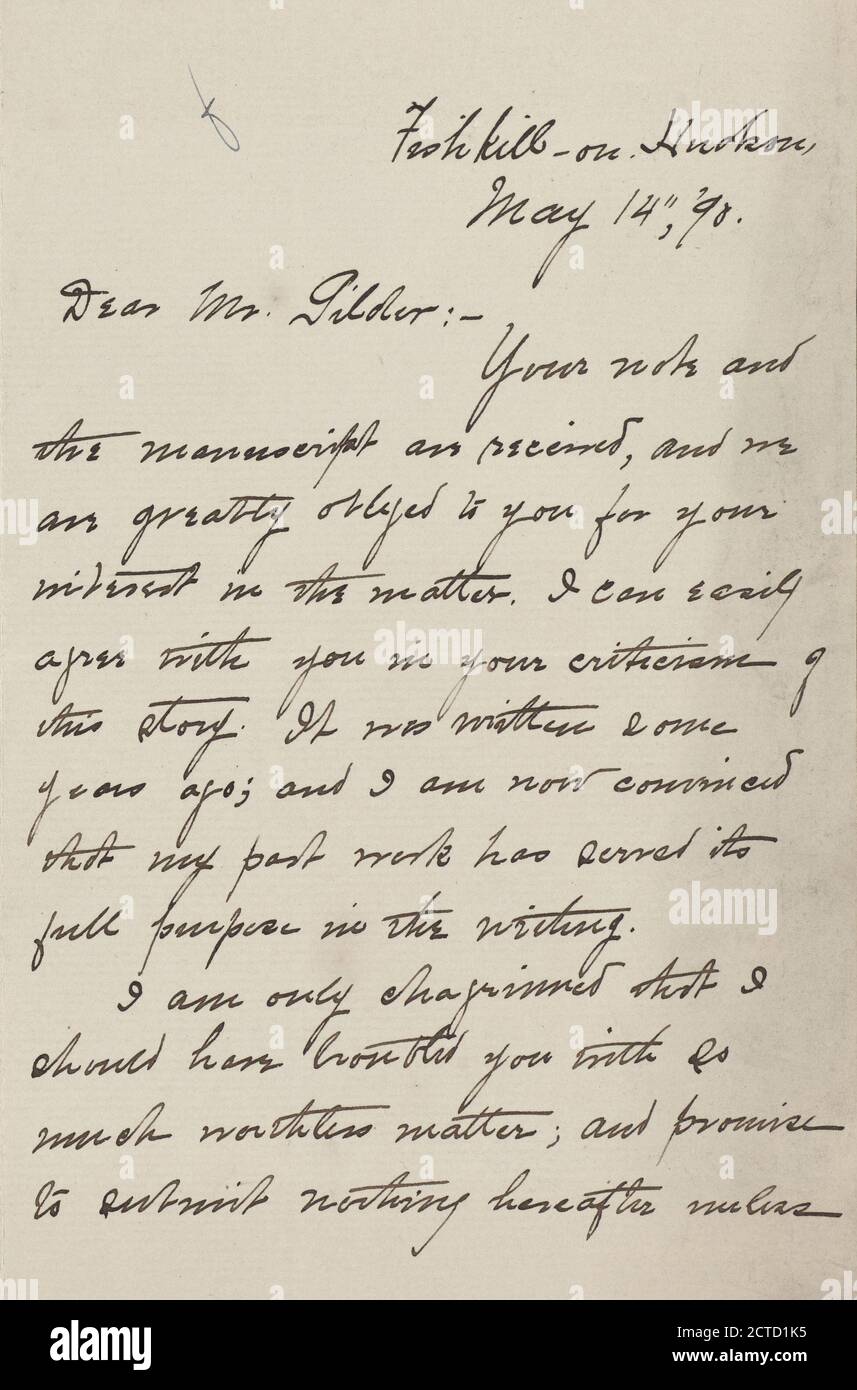 Fishkill-on-Hudson,
May 14", '90.
Dear Mr. Gilder:-
Your note and
the manuscript are received, and we
are greatly obliged to you for your
interest in the matter. I can easily
agree with you in your criticism of
this story. It was written some
years ago; and I am now convinced
that my past work has served its
full purpose in the writing.
I am only chagrinned that I
should have troubled you with so
much worthless matter; and promise
to submit nothing hereafter unless
alamy
Image ID: 2CTD1K5
www.alamy.com